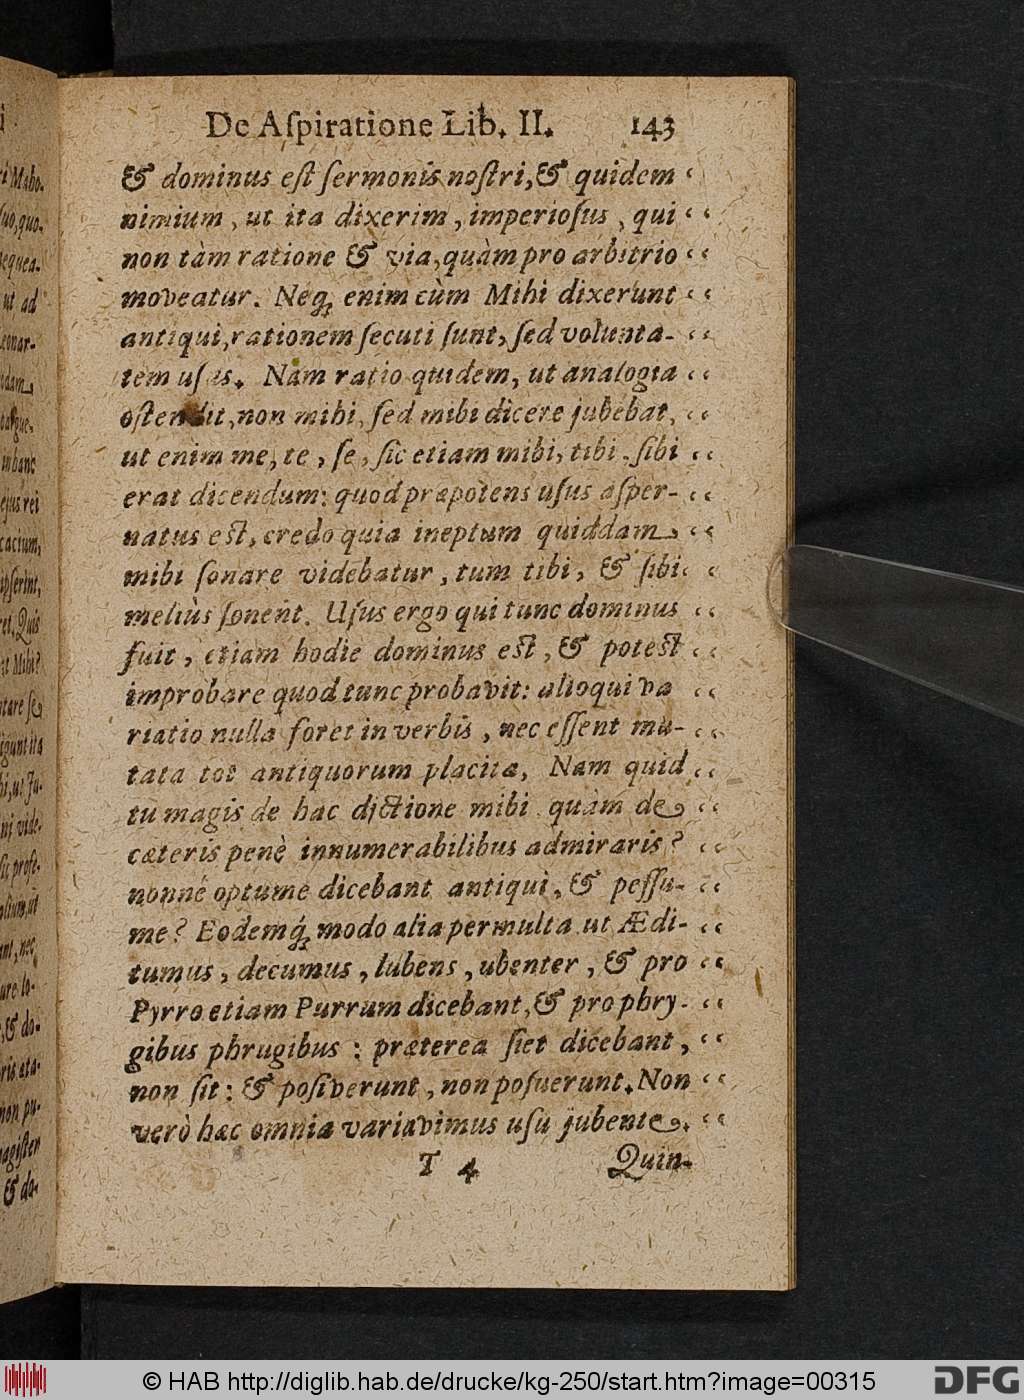 De Aſpiratione Lib. II. 143
& dominus eſt ſermonis noſtri, & quidem
nimium, ut ita dixerim, imperioſus, qui
non tàm ratione & via, quàm pro arbitrio
moveatur. Neq; enim cùm Mihi dixerunt
antiqui, rationem ſecuti ſunt, ſed volunta-
tem uſus. Nam ratio quidem, ut analogia
oſtendit, non mihi, ſed mibi dicere jubebat,
ut enim me, te, ſe, ſic etiam mibi, tibi. ſibi
erat dicendum: quod præpotens uſus aſper-
natus eſt, credo quia ineptum quiddam,
mibi ſonare videbatur, tum tibi, & ſibi
meliùs ſonent. Uſus ergo qui tunc dominus
fuit, etiam hodie dominus eſt, & poteſt
improbare quod tunc probavit: alioqui va
riatio nulla foret in verbis, nec eſſent mu-
tata tot antiquorum placita, Nam quid
tu magis de hac dictione mibi quàm de
cæteris penè innumerabilibus admiraris?
nonne optume dicebant antiqui, & peſſu-
me? Eodemq; modo alia permulta ut Ædi-
tumus, decumus, lubens, ubenter, & pro
Pyrro etiam Purrum dicebant, & pro phry-
gibus phrugibus: præterea ſiet dicebant,
non ſit: & poſiverunt, non poſuerunt. Non
verò hæc omnia variavimus uſu jubente.
T 4 Quin-
i
ri Mabo-
ſuo, quo-
nequea-
ut ad
Leonar-
in hanc
ejus rei
cacium,
ipſerint,
ret. Quis
at Mihi?
tare ſe
igunt ita
bi, ut Ju-
iij vide-
ſic profe-
ant, nec
ure lo-
, & do-
ris ata-
non pu-
magiſter
& do-
© HAB http://diglib.hab.de/drucke/kg-250/start.htm?image=00315
DFG